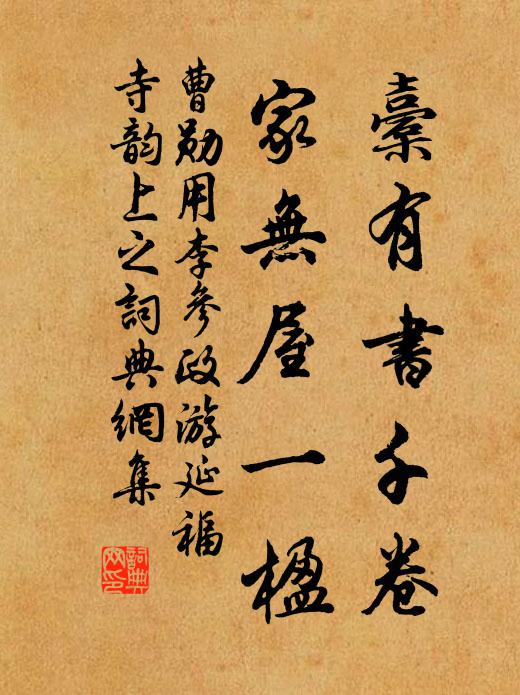 橐有書千卷
家無屋一楹
曹勛用李參政游延福
寺韵上之詞典網集
詞典
网印